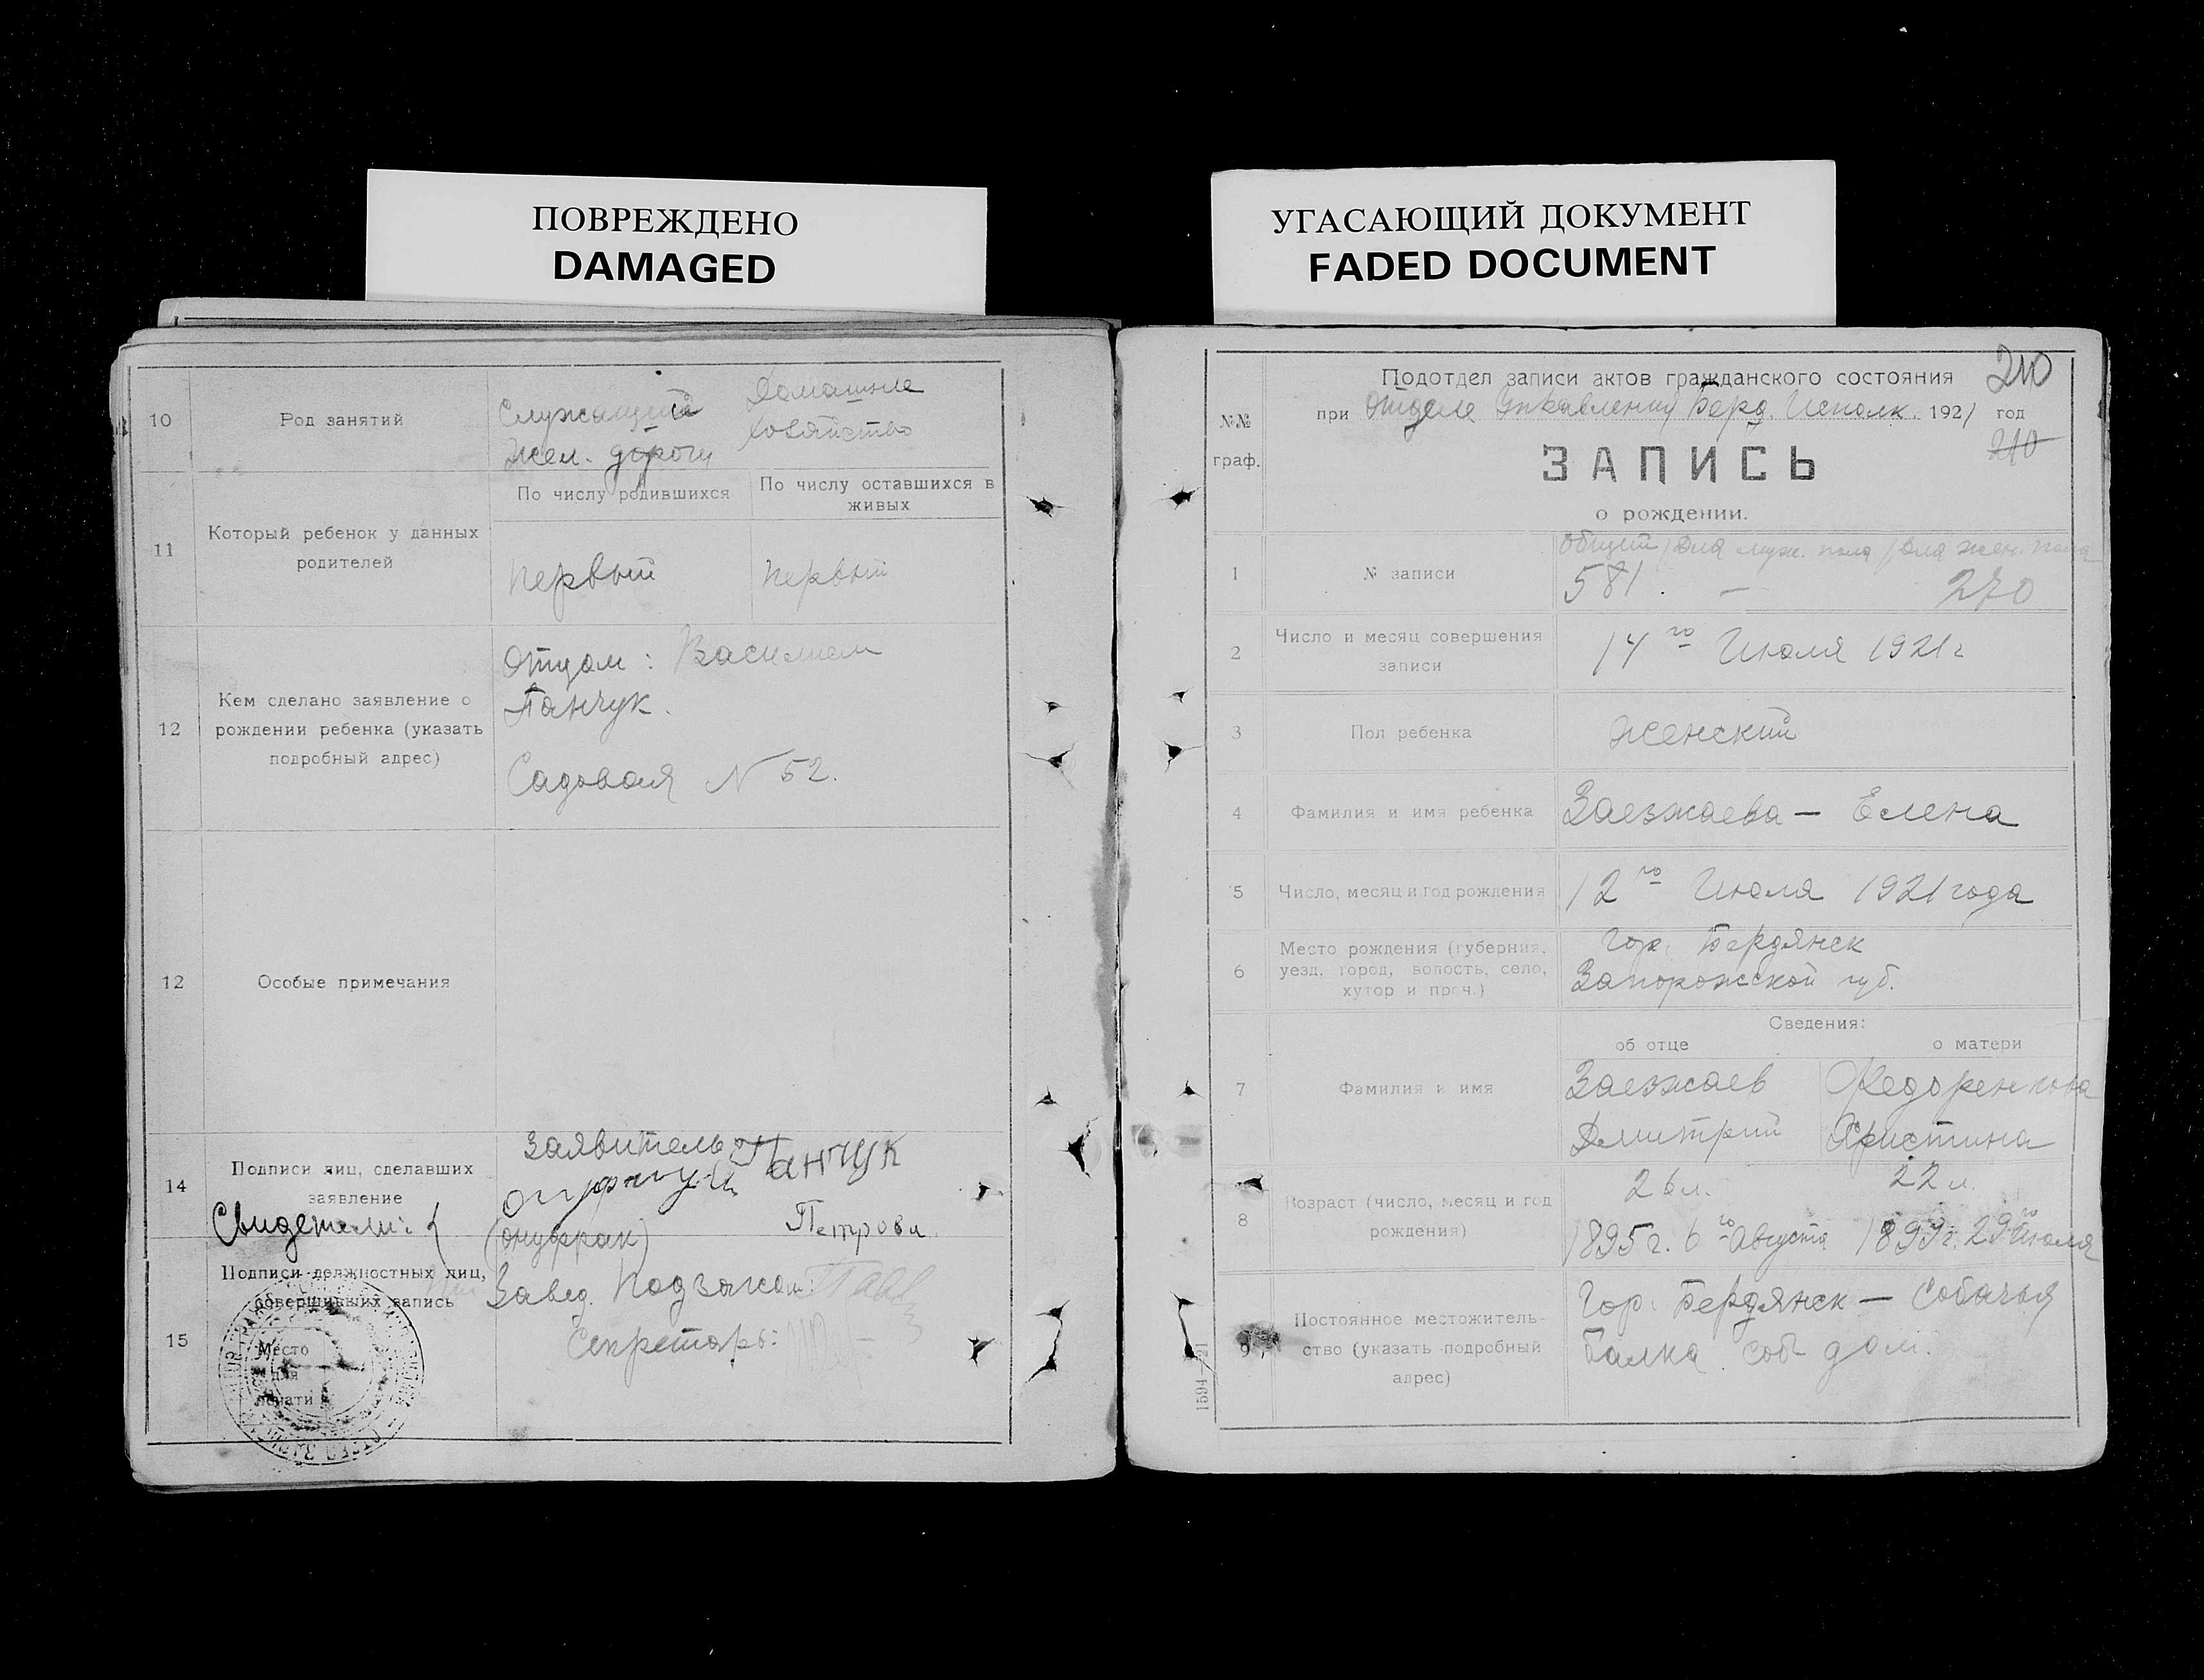 ПОВРЕЖДЕНО
DAMAGED
УГАСАЮЩИЙ ДОКУМЕНТ
FADED DOCUMENT
10
Род занятий
Служащий
Жел. дороги
Домашнее
хозяйство
11
Который ребенок у данных
родителей
По числу родившихся
По числу оставшихся в
живых
первый
первый
12
Кем сделано заявление о
рождении ребенка (указать
подробный адрес)
Отцом: Василием
Панчук.
Садовая № 52.
12
Особые примечания
14
Подписи лиц, сделавших
заявление
Свидетели:
Заявитель Панчук
(Онуфрак)
Петрови
15
Подписи должностных лиц,
совершивших запись
Завед. Подзагсом:
Секретарь:
Место
для
печати
210
Подотдел записи актов гражданского состояния
при Отделе Управления Берд. Исполк. 1921 год
210
№№
граф.
ЗАПИСЬ
о рождении.
1
№ записи
Общий / Для муж. пола / Для жен. пола
581. — 270
2
Число и месяц совершения
записи
14го Июля 1921г
3
Пол ребенка
женский
4
Фамилия и имя ребенка
Заезжаева — Елена
5
Число, месяц и год рождения
12го Июля 1921 года
6
Место рождения (губерния,
уезд, город, волость, село,
хутор и проч.)
Гор. Бердянск
Запорожской губ.
Сведения:
об отце
о матери
7
Фамилия и имя
Заезжаев
Дмитрий
Федоренкова
Христина
8
Возраст (число, месяц и год
рождения)
26 л.
1895г. 6го Августа
22 л.
1899г. 29го Июля
9
Постоянное местожитель-
ство (указать подробный
адрес)
Гор. Бердянск — Собачья
балка соб дом.
1594—21